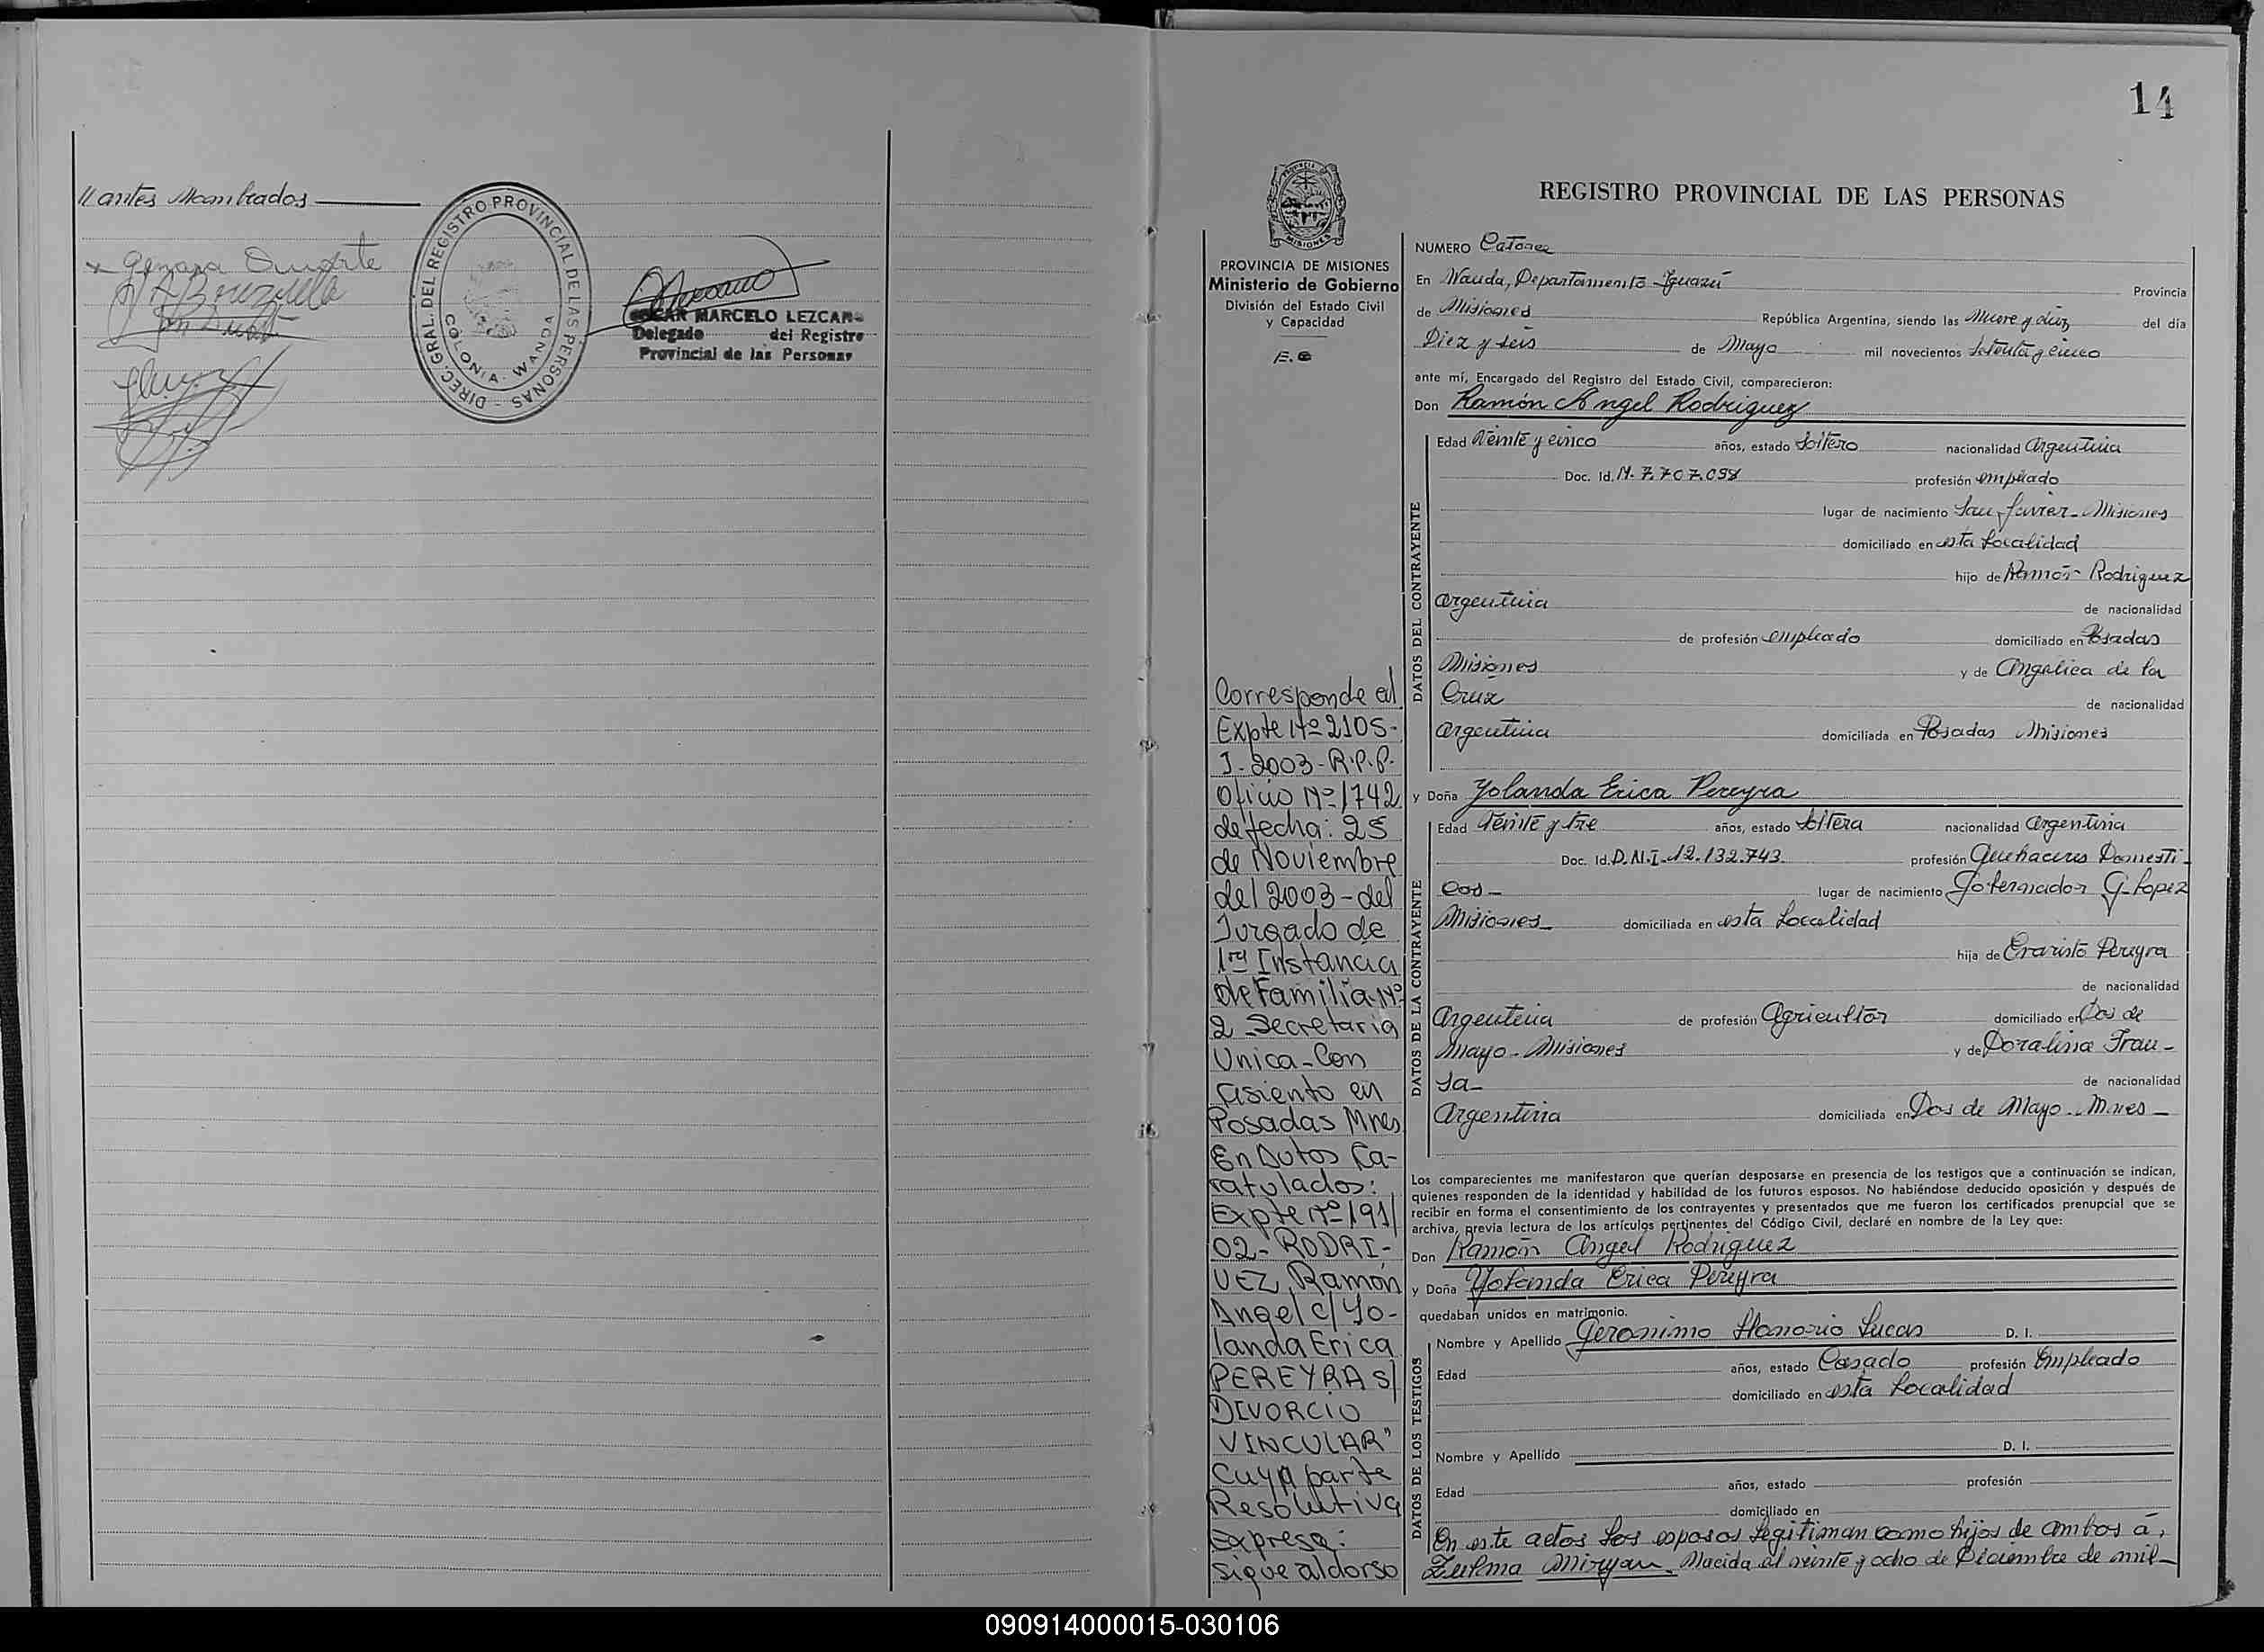 // antes Nombrados
Genara Duarte
DIREC. GRAL. DEL REGISTRO PROVINCIAL DE LAS PERSONAS -
COLONIA - WANDA
OSCAR MARCELO LEZCANO
Delegado del Registro
Provincial de las Personas
14
PROVINCIA DE MISIONES
Ministerio de Gobierno
División del Estado Civil
y Capacidad
Corresponde al
Expte Nº 2105-
J-2003-R.P.P.
Oficio Nº 1742
de fecha: 25
de Noviembre
del 2003-del
Jurgado de
1ra Instancia
de Familia Nº
2-Secretaria
Unica-Con
asiento en
Posadas Mnes
En Autos Ca-
ratulados:
Expte nº 191/
02-RODRI-
UEZ Ramón
Angel c/ Yo-
landa Erica
PEREYRA S/
DIVORCIO
VINCULAR"
Cuya parte
Resolutiva
Expresa:
sigue al dorso
REGISTRO PROVINCIAL DE LAS PERSONAS
NUMERO Catorce
En Wanda, Departamento Iguazú Provincia
de Misiones República Argentina, siendo las Nueve y diez del día
Diez y seis de Mayo mil novecientos setenta y cinco
ante mí, Encargado del Registro del Estado Civil, comparecieron:
Don Ramón Angel Rodriguez
DATOS DEL CONTRAYENTE
Edad Veinte y cinco años, estado soltero nacionalidad Argentina
Doc. Id. M. 7.707.098 profesión empleado
lugar de nacimiento San Javier - Misiones
domiciliado en esta localidad
hijo de Ramón Rodriguez
Argentina de nacionalidad
de profesión empleado domiciliado en Posadas
Misiones y de Angelica de la
Cruz de nacionalidad
argentina domiciliada en Posadas Misiones
y Doña Yolanda Erica Pereyra
DATOS DE LA CONTRAYENTE
Edad Veinte y tre años, estado soltera nacionalidad Argentina
Doc. Id. D.N.I. 12.132.743 profesión Quehaceres Domesti-
cos- lugar de nacimiento Gobernador G-Lopez
Misiones- domiciliada en esta Localidad
hija de Evaristo Pereyra
de nacionalidad
Argentina de profesión Agricultor domiciliado en Dos de
Mayo - Misiones y de Doralina Frau-
sa- de nacionalidad
Argentina domiciliada en Dos de Mayo - Mnes -
Los comparecientes me manifestaron que querían desposarse en presencia de los testigos que a continuación se indican,
quienes responden de la identidad y habilidad de los futuros esposos. No habiéndose deducido oposición y después de
recibir en forma el consentimiento de los contrayentes y presentados que me fueron los certificados prenupcial que se
archiva, previa lectura de los artículos pertinentes del Código Civil, declaré en nombre de la Ley que:
Don Ramón Angel Rodriguez
y Doña Yolanda Erica Pereyra
quedaban unidos en matrimonio.
DATOS DE LOS TESTIGOS
Nombre y Apellido Geronimo Honorio Lucas D. I.
Edad años, estado Casado profesión Empleado
domiciliado en esta Localidad
Nombre y Apellido D. I.
Edad años, estado profesión
domiciliado en
En este actos los esposos Legitiman como hijos de ambos á,
Zulma Miryan. Nacida el veinte y ocho de Diciembre de mil-
090914000015-030106